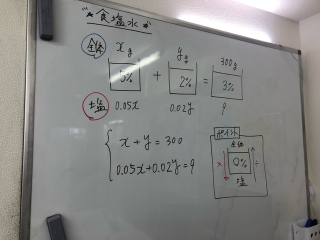 食塩水
全体 xg yg 300g
5% + 2% = 3%
塩 0.05x 0.02y 9
x+y=300
0.05x+0.02y=9
ポイント
全体
× 0% ÷
塩